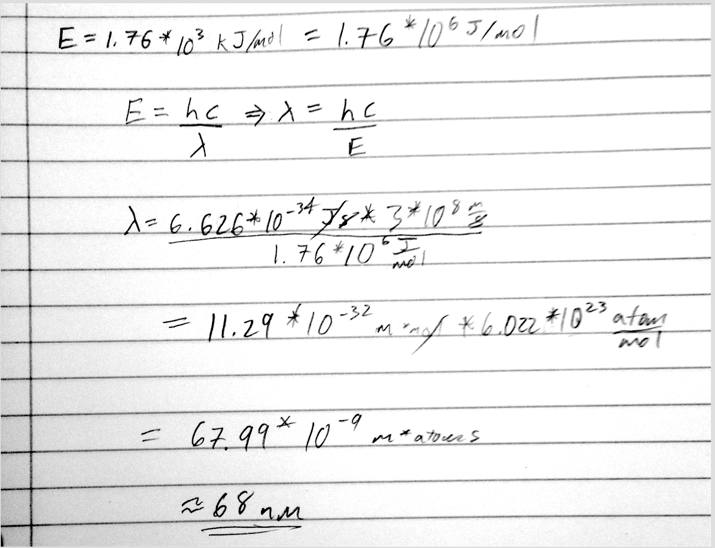 E = 1.76 * 10³ kJ/mol = 1.76 * 10⁶ J/mol
E = hc/λ ⇒ λ = hc/E
λ = 6.626*10⁻³⁴ Js * 3*10⁸ m/s
1.76 * 10⁶ J/mol
= 11.29 * 10⁻³² m·mol * 6.022 * 10²³ atom/mol
= 67.99 * 10⁻⁹ m*atoms
≈ 68 nm